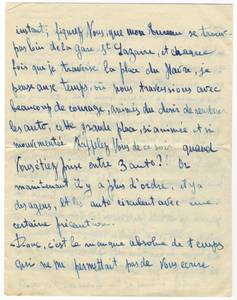 instant; figurez Vous, que mon Bureau se trouve
pas loin de la gare St Lazarre, et chaque
fois que je traverse la place du Havre, je
pense aux temps, où nous traversions avec
beaucoup de courage, animés du désir de
les auto, cette grande place, si animée et si
mouvementée. Rappelez Vous de ce soir quand
Vous étiez prise entre 3 auto?! Or
maintenant il y a plus d'ordre, il y a
des agents, et les auto circulent avec une
certaine précaution.
Donc, c'est le manque absolue de temps
qui ne me permettait pas de Vous écrire